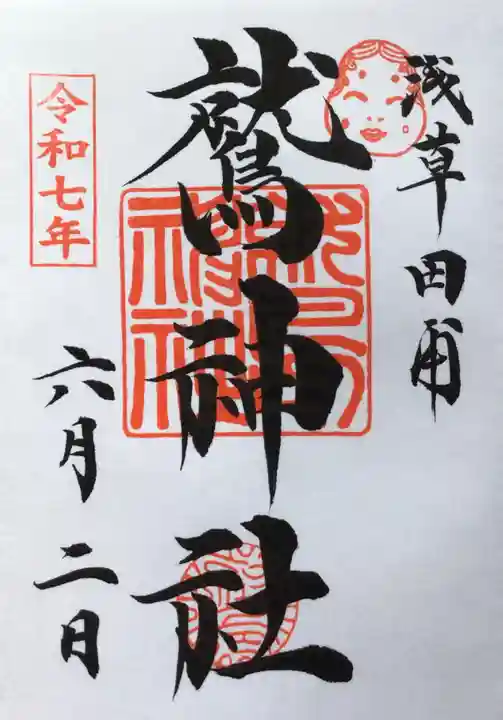 浅草田甫
鷲神社
令和七年
六月二日